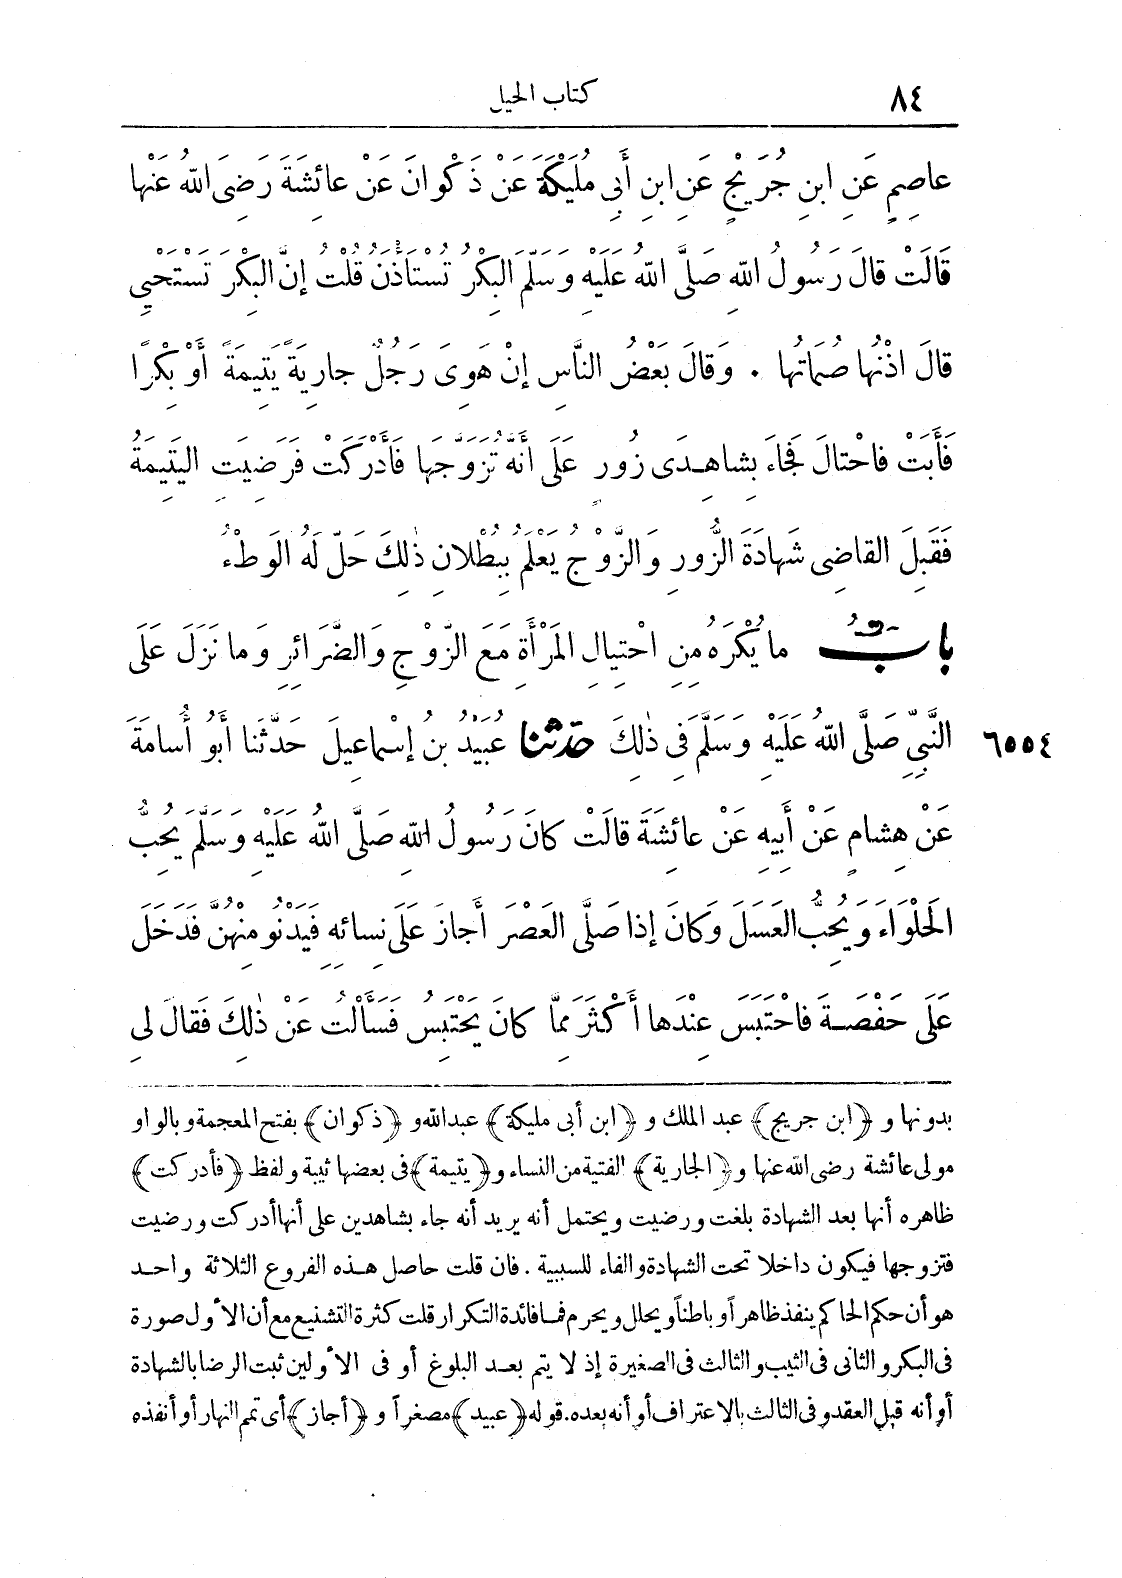 ٨٤ كتاب الحيل
عاصِمٍ عَنِ ابنِ جُرَيْجٍ عَنِ ابنِ أَبِى مُلَيْكَةَ عَنْ ذَكْوانَ عَنْ عائِشَةَ رَضِىَ اللهُ عَنْها
قَالَتْ قالَ رَسُولُ اللهِ صَلَّى اللهُ عَلَيْهِ وَسَلَّمَ البِكْرُ تُسْتَأْذَنُ قُلْتُ إنَّ البِكْرَ تَسْتَحْيِي
قالَ اذْنُها صُمَاتُها . وَقالَ بَعْضُ النَّاسِ إنْ هَوِىَ رَجُلٌ جارِيَةً يَتِيمَةً أَوْ بِكْرًا
فَأَبَتْ فاحْتالَ فَجاءَ بِشاهِدَى زُورٍ عَلَى أَنَّهُ تَزَوَّجَها فَأَدْرَكَتْ فَرَضِيَتِ اليَتِيمَةُ
فَقَبِلَ القاضِى شَهادَةَ الزُّورِ وَالزَّوْجُ يَعْلَمُ بِبُطْلانِ ذٰلِكَ حَلَّ لَهُ الوَطْءُ
بابُ ما يُكْرَهُ مِنِ احْتِيالِ المَرْأَةِ مَعَ الزَّوْجِ وَالضَّرَائِرِ وَما نَزَلَ عَلَى
النَّبِيِّ صَلَّى اللهُ عَلَيْهِ وَسَلَّمَ فِى ذٰلِكَ حَدَّثَنا عُبَيْدُ بنُ إسْماعِيلَ حَدَّثَنا أَبُو أُسامَةَ ٦٥٥٤
عَنْ هِشامٍ عَنْ أَبِيهِ عَنْ عائِشَةَ قالَتْ كانَ رَسُولُ اللهِ صَلَّى اللهُ عَلَيْهِ وَسَلَّمَ يُحِبُّ
الحَلْوَاءَ وَيُحِبُّ العَسَلَ وَكانَ إذا صَلَّى العَصْرَ أَجازَ عَلَى نِسائِهِ فَيَدْنُو مِنْهُنَّ فَدَخَلَ
عَلَى حَفْصَةَ فاحْتَبَسَ عِنْدَها أَكْثَرَ مِمَّا كانَ يَحْتَبِسُ فَسَأَلْتُ عَنْ ذٰلِكَ فَقالَ لِى
بدونها و ﴿ابن جريج﴾ عبد الملك و ﴿ابن أبى مليكة﴾ عبد الله و ﴿ذكوان﴾ بفتح المعجمة وبالواو
مولى عائشة رضى الله عنها و ﴿الجارية﴾ الفتية من النساء و ﴿يتيمة﴾ فى بعضها ثيبة ولفظ ﴿فأدركت﴾
ظاهره أنها بعد الشهادة بلغت ورضيت ويحتمل أنه يريد أنه جاء بشاهدين على أنها أدركت ورضيت
فتزوجها فيكون داخلا تحت الشهادة والفاء للسببية . فان قلت حاصل هذه الفروع الثلاثة واحد
هو أن حكم الحاكم ينفذ ظاهراً وباطناً ويحلل ويحرم فما فائدة التكرار قلت كثرة التشنيع مع أن الأول صورة
فى البكر والثانى فى الثيب والثالث فى الصغيرة إذ لا يتم بعد البلوغ أو فى الأولين ثبت الرضا بالشهادة
أو أنه قبل العقد وفى الثالث بالاعتراف أو أنه بعده . قوله ﴿عبيد﴾ مصغراً و ﴿أجاز﴾ أى تمم النهار أو أنفذه